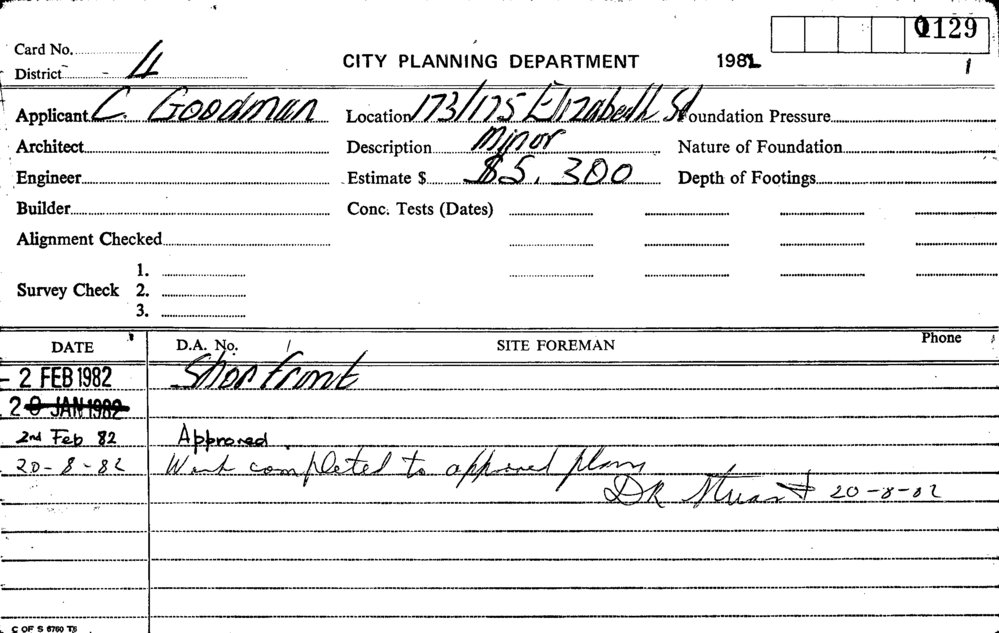 0129
Card No.
District 4 CITY PLANNING DEPARTMENT 1982 1
Applicant C. Goodman Location 173/175 Elizabeth St Foundation Pressure
Architect Description Minor Nature of Foundation
Engineer Estimate $ $5,300 Depth of Footings
Builder Conc. Tests (Dates)
Alignment Checked
1.
Survey Check 2.
3.
DATE D.A. No. SITE FOREMAN Phone
- 2 FEB 1982 Shop front
2 0 JAN 1982
2nd Feb 82 Approved.
20-8-82 Work completed to approved plans
DR Stuart 20-8-82
C OF S 6760 TS